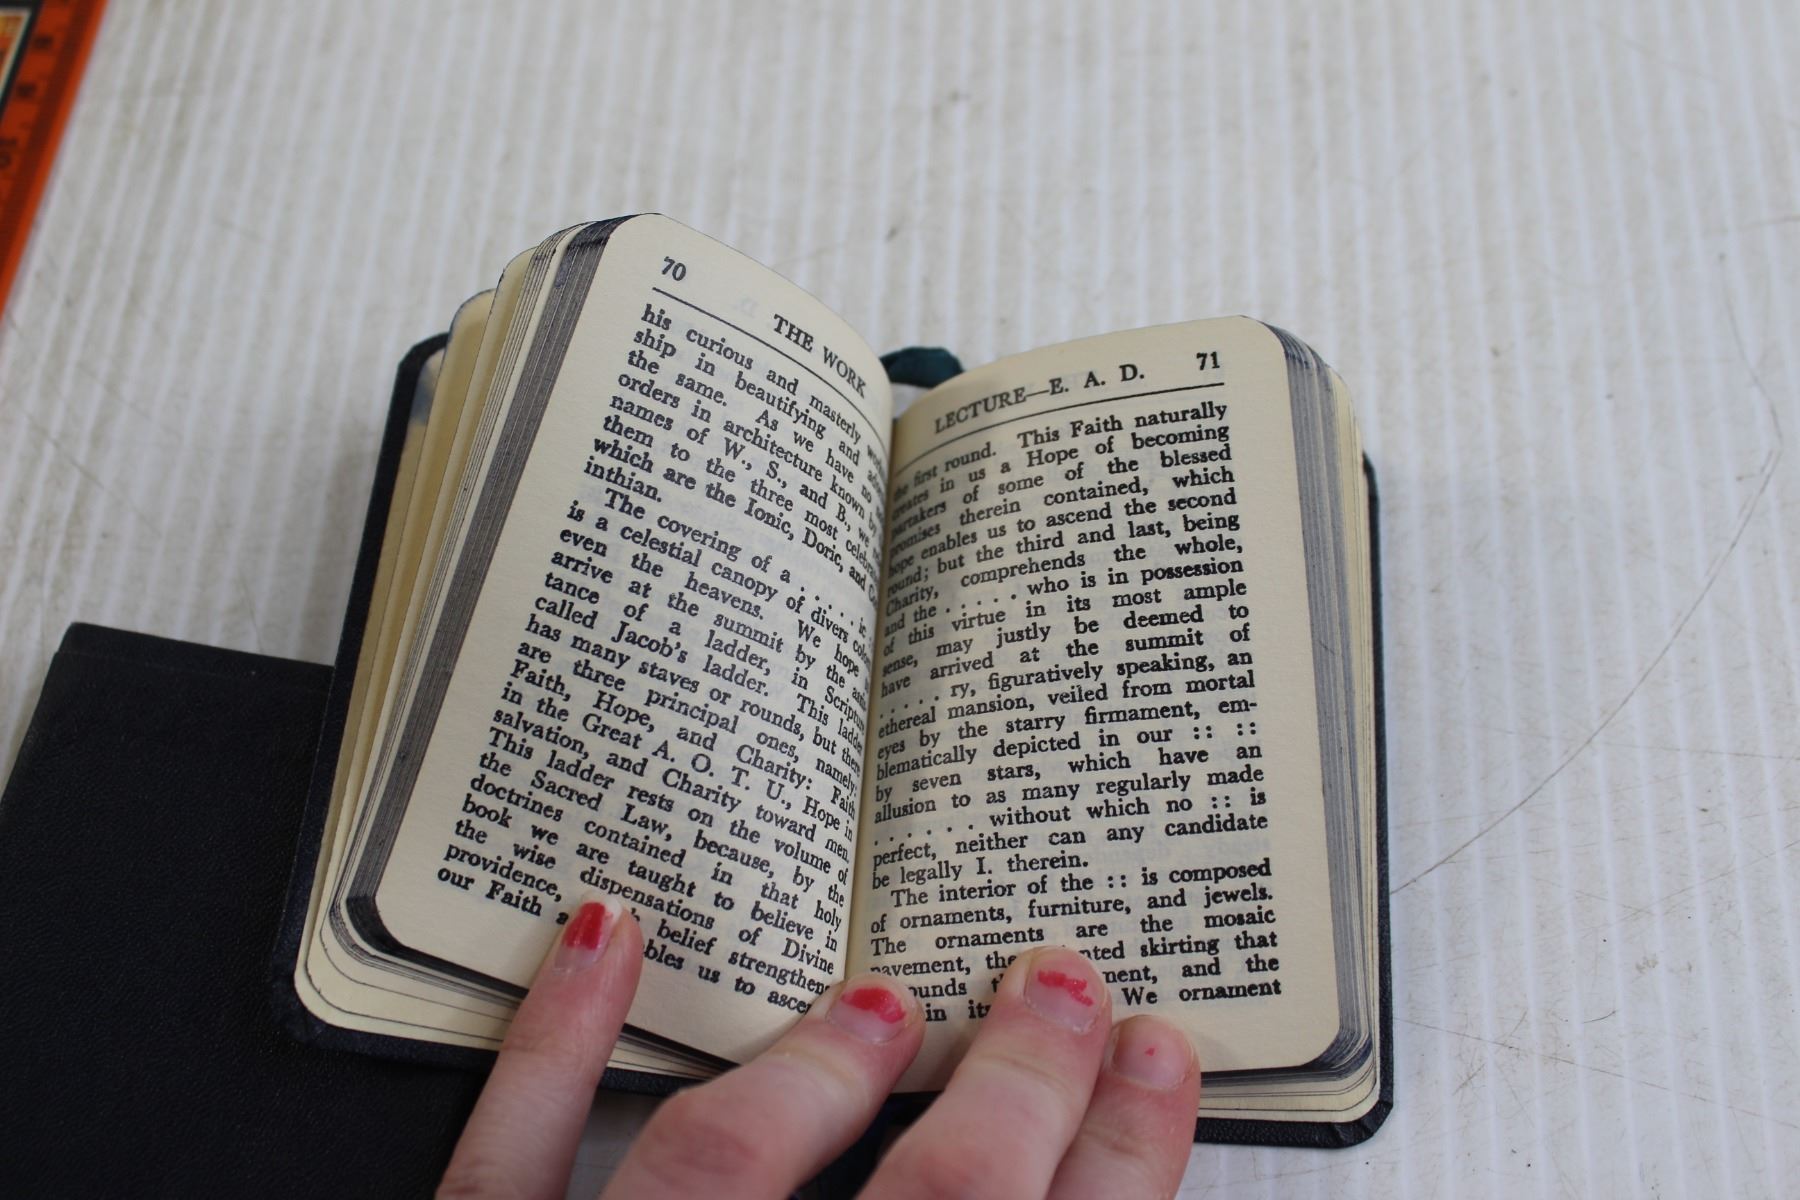 70
THE WORK
his curious and masterly
ship in beautifying and
the same. As we have no
orders in architecture known by
names of W., S., and B., we
them to the three most
which are the Ionic, Doric, and
inthian.
The covering of a . . . . .
is a celestial canopy of divers
even the heavens. We hope
arrive at the summit by the
tance of a ladder, in Scripture
called Jacob's ladder. This ladder
has many staves or rounds, but there
are three principal ones, namely:
Faith, Hope, and Charity: Faith
in the Great A. O. T. U., Hope in
salvation, and Charity toward men.
This ladder rests on the volume of
the Sacred Law, because, by the
doctrines contained in that holy
book we are taught to believe in
the wise dispensations of Divine
providence, belief strengthens
our Faith us to
LECTURE—E. A. D. 71
the first round. This Faith naturally
creates in us a Hope of becoming
partakers of some of the blessed
promises therein contained, which
hope enables us to ascend the second
round; but the third and last, being
Charity, comprehends the whole,
and the . . . . . who is in possession
of this virtue in its most ample
sense, may justly be deemed to
have arrived at the summit of
. . . . ry, figuratively speaking, an
ethereal mansion, veiled from mortal
eyes by the starry firmament, em-
blematically depicted in our :: ::
by seven stars, which have an
allusion to as many regularly made
. . . . . . without which no :: is
perfect, neither can any candidate
be legally I. therein.
The interior of the :: is composed
of ornaments, furniture, and jewels.
The ornaments are the mosaic
pavement, the skirting that
and the
in its We ornament